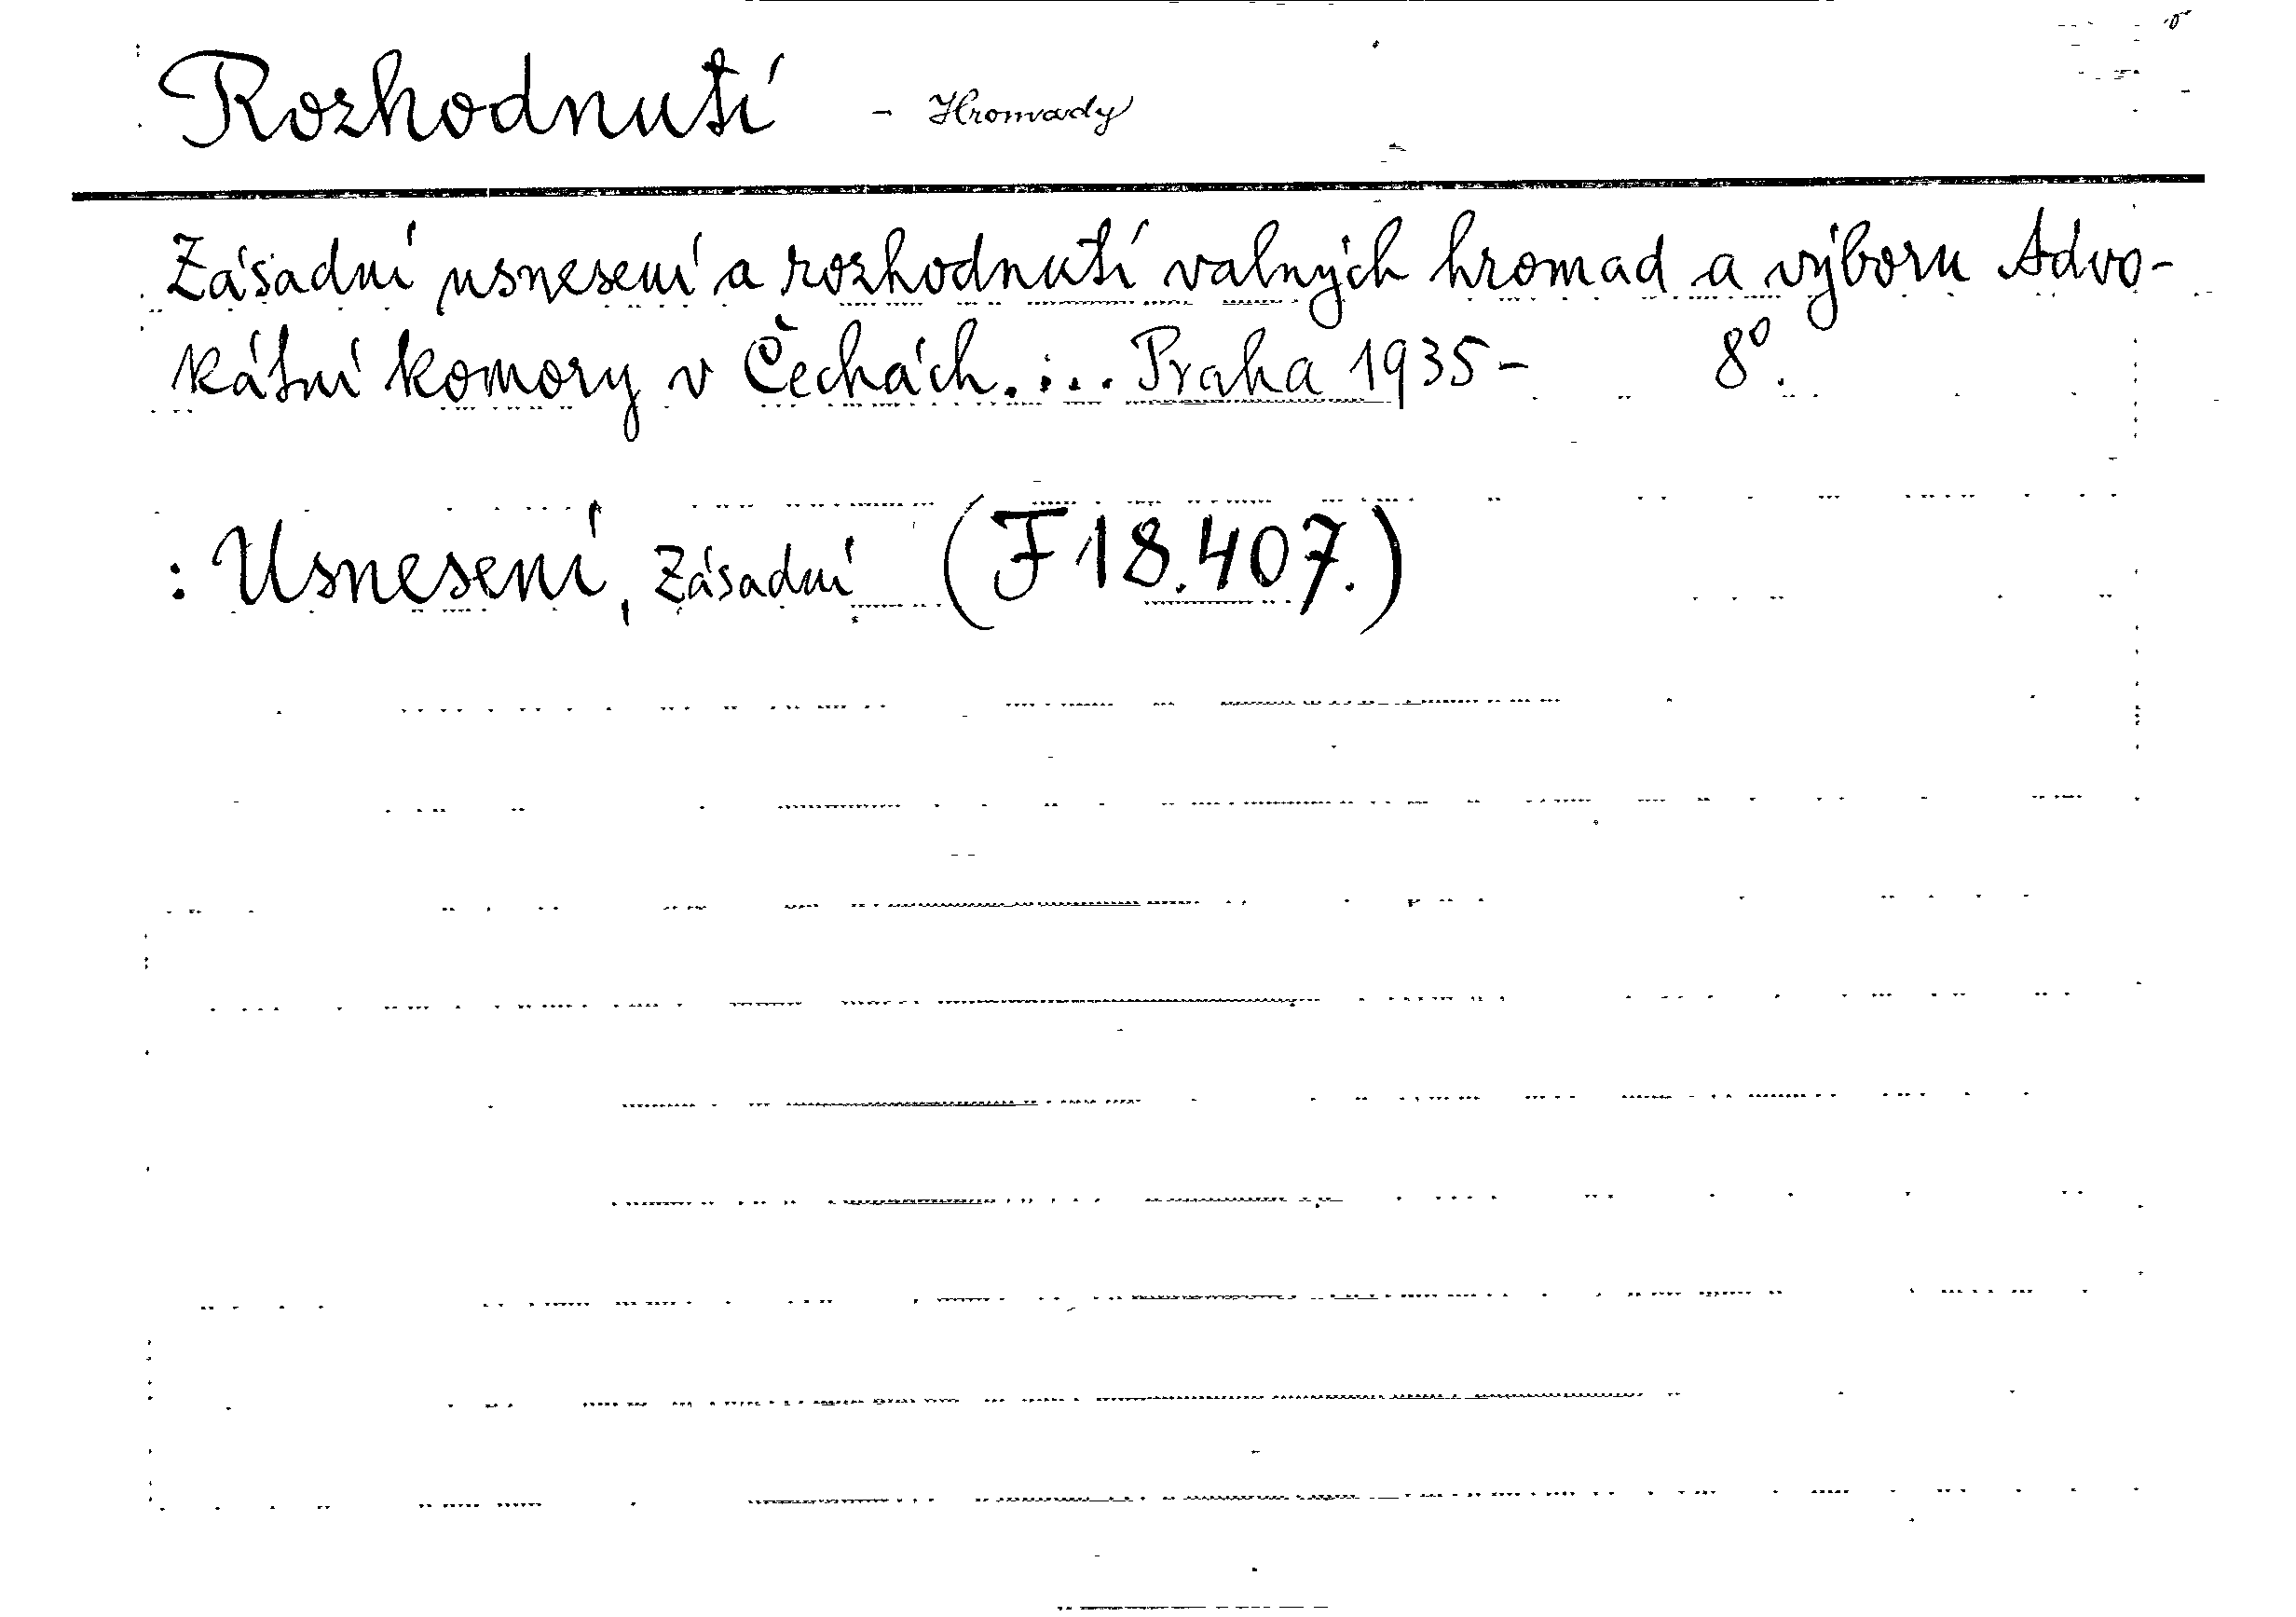 Rozhodnutí - Hromady
Zásadní usnesení a rozhodnutí valných hromad a výboru Advo-
kátní komory v Čechách. ... Praha 1935- 8º.
: Usnesení, Zásadní (F 18.407.)